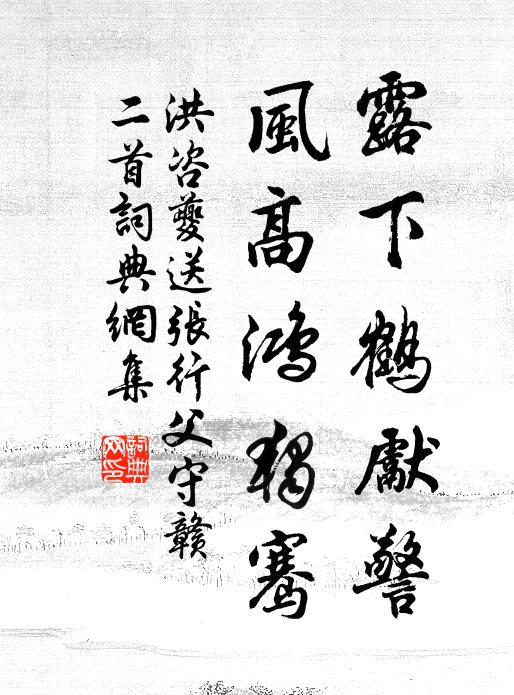 露下鶴獻警
風高鴻獨騫
洪咨夔送張行父守贛
二首詞典網集
詞典
网印